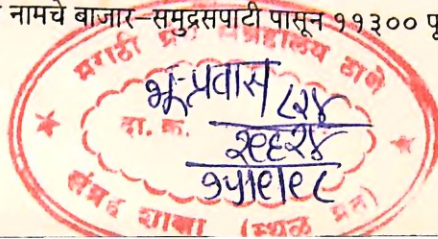 नामचे बाजार–समुद्रसपाटी पासून ११३००
मराठी ग्रंथ संग्रहालय ठाणे
भू-प्रवास ८२४
दा. क्र. २९६२४
१५।९।९८
संग्रह शाखा (स्थळ प्रत)